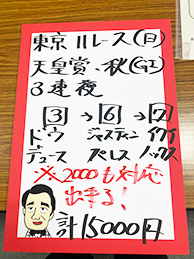 東京11レース(日)
天皇賞・秋(GI)
3連複
3→6→7
ドウ ジャスティン イクイ
デュース パレス ノックス
※2000も対応
出来る!
計15000円